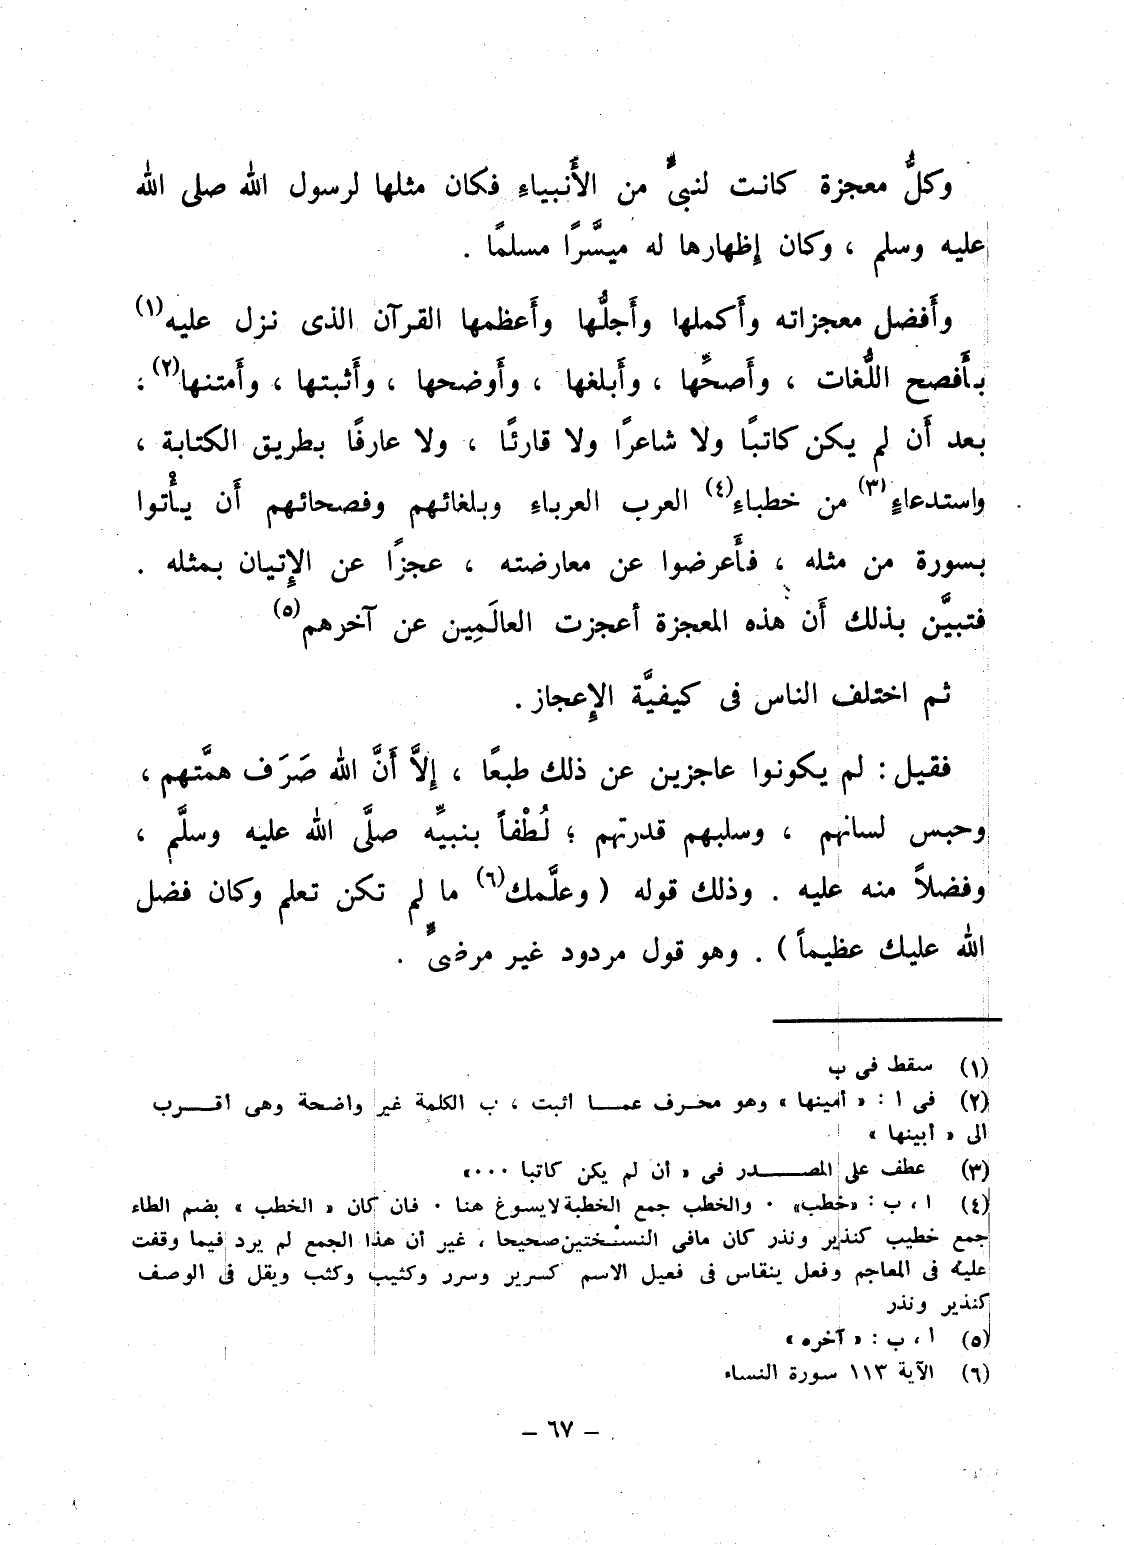 وكلُّ معجزة كانت لنبىٍّ من الأَنبياءِ فكان مثلها لرسول الله صلى الله
عليه وسلم ، وكان إِظهارها له ميسَّرًا مسلمًا .
وأَفضل معجزاته وأَكملها وأَجلُّها وأَعظمها القرآن الذى نزل عليه(١)
بأَفصح اللُّغات ، وأَصحِّها ، وأَبلغها ، وأَوضحها ، وأَثبتها ، وأَمتنها(٢) :
بعد أَن لم يكن كاتبًا ولا شاعرًا ولا قارئًا ، ولا عارفًا بطريق الكتابة ،
واستدعاءٍ(٣) من خطباءِ(٤) العرب العرباءِ وبلغائهم وفصحائهم أَن يأْتوا
بسورة من مثله ، فأَعرضوا عن معارضته ، عجزًا عن الإِتيان بمثله .
فتبيَّن بذلك أَن هذه المعجزة أَعجزت العالَمِين عن آخرهم(٥)
ثم اختلف الناس فى كيفيَّة الإِعجاز .
فقيل : لم يكونوا عاجزين عن ذلك طبعًا ، إِلاَّ أَنَّ الله صَرَف همَّتهم ،
وحبس لسانهم ، وسلبهم قدرتهم ؛ لُطْفاً بنبيِّه صلَّى الله عليه وسلَّم ،
وفضلاً منه عليه . وذلك قوله ( وعلَّمك(٦) ما لم تكن تعلم وكان فضل
الله عليك عظيماً ) . وهو قول مردود غير مرضىٍّ .
(١) سقط فى ب
(٢) فى ا : « أمينها » وهو محرف عمـا اثبت ، ب الكلمة غير واضحة وهى أقـرب
الى « أبينها »
(٣) عطف على المصـدر فى « أن لم يكن كاتبا ٠٠٠»
(٤) ا ، ب : «خطب» ٠ والخطب جمع الخطبة لايسوغ هنا ٠ فان كان « الخطب » بضم الطاء
جمع خطيب كنذير ونذر كان مافى النسختين صحيحا ، غير أن هذا الجمع لم يرد فيما وقفت
عليه فى المعاجم وفعل ينقاس فى فعيل الاسم كسرير وسرر وكثيب وكثب ويقل فى الوصف
كنذير ونذر
(٥) أ ، ب : « آخره »
(٦) الآية ١١٣ سورة النساء
– ٦٧ –